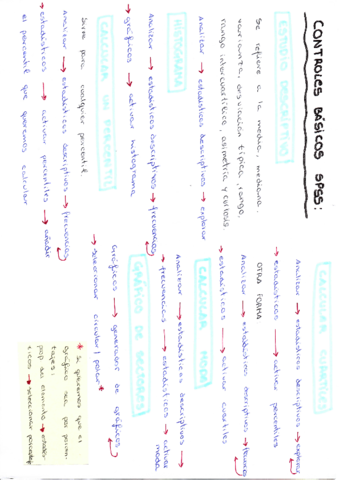 CONTROLES BÁSICOS SPSS:
ESTUDIO DESCRIPTIVO
Se refiere a la media, mediana,
varianza, desviación típica, rango,
rango intercuartílico, asimetría y curtosis
Analizar → estadísticos descriptivos → explorar
HISTOGRAMA
Analizar → estadísticos descriptivos → frecuencias
→ gráficos → activar histograma
CALCULAR UN PERCENTIL
Sirve para cualquier percentil.
Analizar → estadísticos descriptivos → frecuencias
→ estadísticos → activar percentiles → añadir
el percentil que queremos calcular
CALCULAR CUARTILES
Analizar → estadísticos descriptivos → explorar
→ estadísticos → activar percentiles
OTRA FORMA
Analizar → estadísticos descriptivos → frecuencias
→ estadísticos → activar cuartiles
CALCULAR MODA
Analizar → estadísticos descriptivos →
→ frecuencias → estadísticos → activar
moda
GRÁFICO DE SECTORES
Gráficos → generador de gráficos
→ seleccionar circular / polar *
* Si queremos que el
gráfico sea por porcen-
tajes:
→ seleccionar